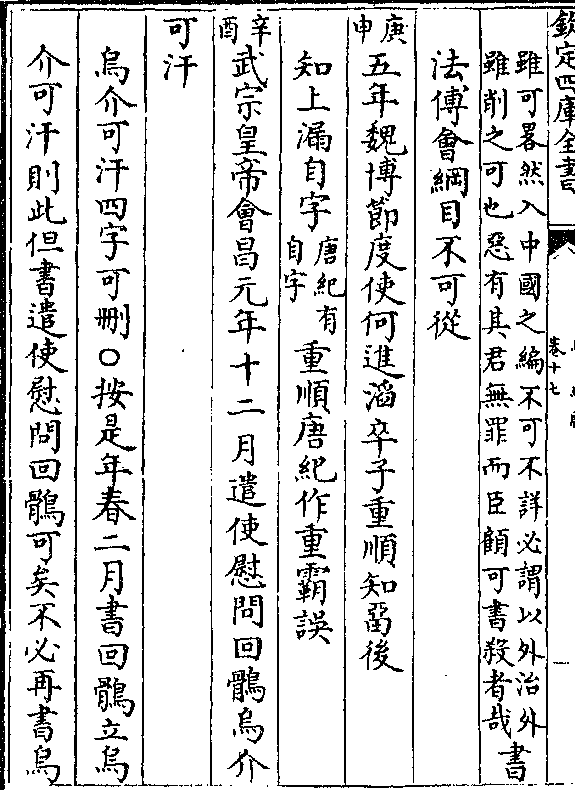 欽定四庫全書
卷十七
雖可畧然入中國之編不可不詳必謂以外治外
雖削之可也惡有其君無罪而臣顧可書殺者哉
書
法傅會綱目不可從
庚申
五年魏博節度使何進滔卒子重順知留後
知上漏自字
唐紀有
自字
重順唐紀作重霸誤
辛酉
武宗皇帝會昌元年十二月遣使慰問回鶻烏介
可汗
烏介可汗四字可刪○按是年春二月書回鶻立烏
介可汗則此但書遣使慰問回鶻可矣不必再書烏